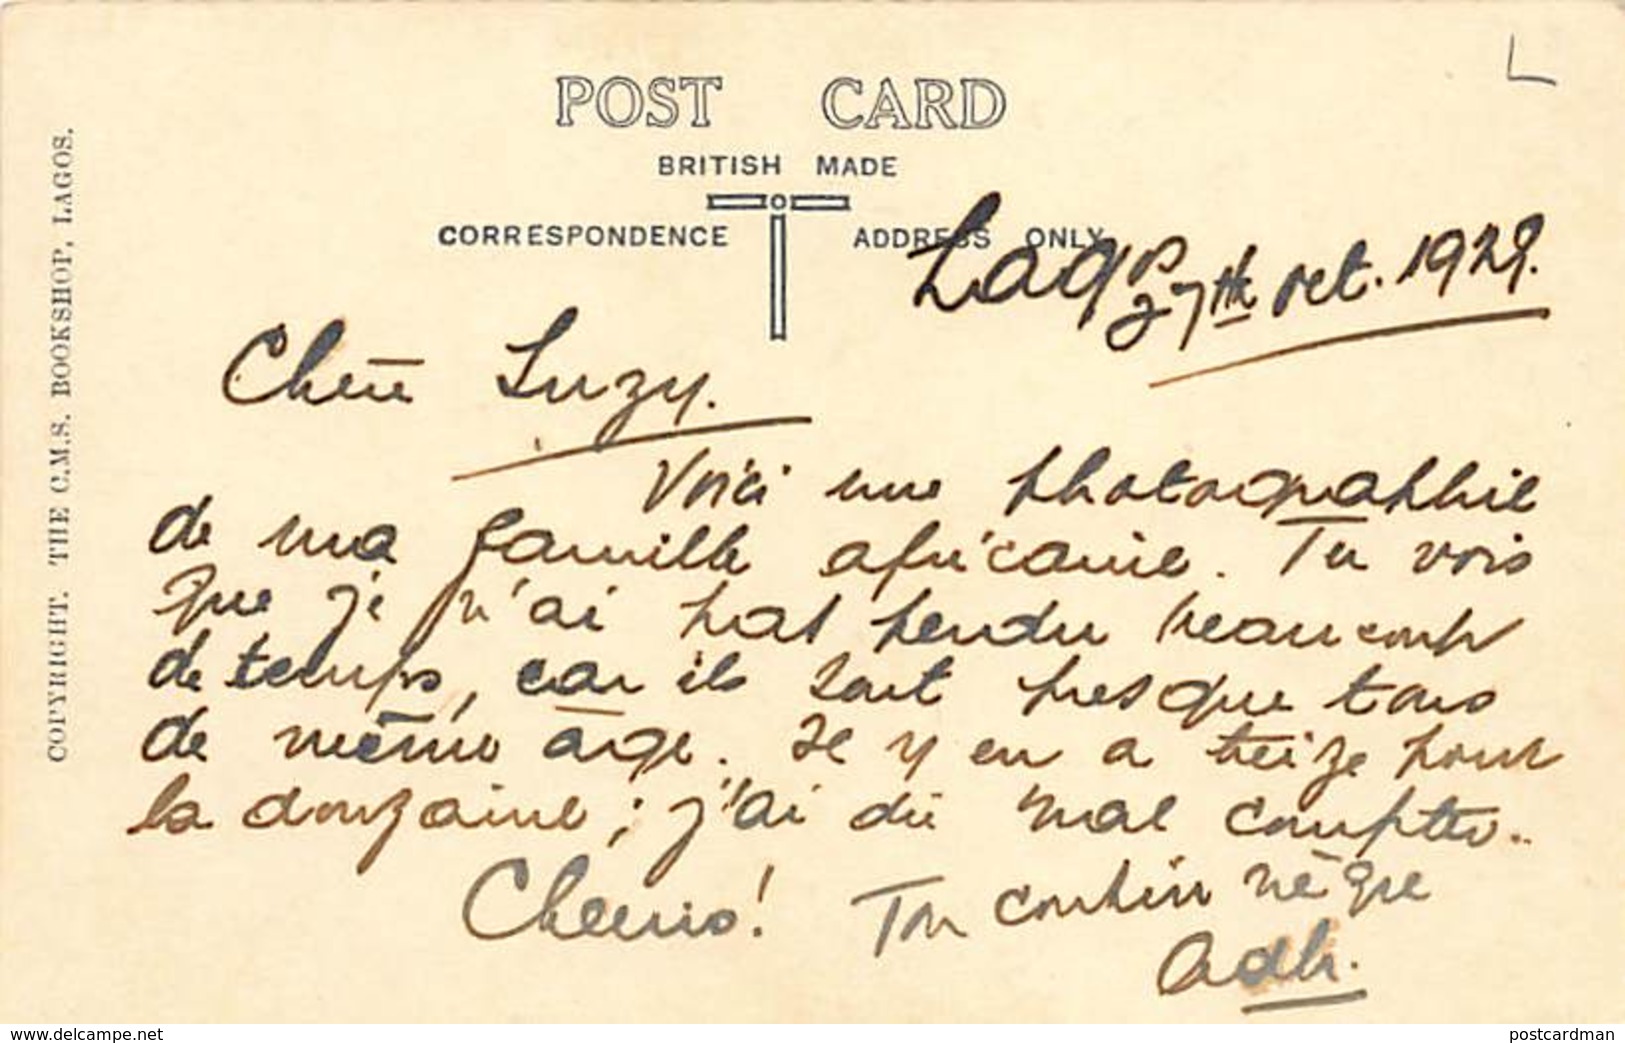 L
POST CARD
BRITISH MADE
CORRESPONDENCE ADDRESS ONLY
COPYRIGHT. THE C.M.S. BOOKSHOP, LAGOS.
Lagos
27th Oct. 1929.
Chère Suzy.
Voici une photographie
de ma famille africaine. Tu vois
que je n'ai pas perdu beaucoup
de temps, car ils sont presque tous
de même âge. Il y en a treize pour
la douzaine; j'ai dû mal compter..
Cheerio! Ton cousin nègre
delcampe.net
postcardman